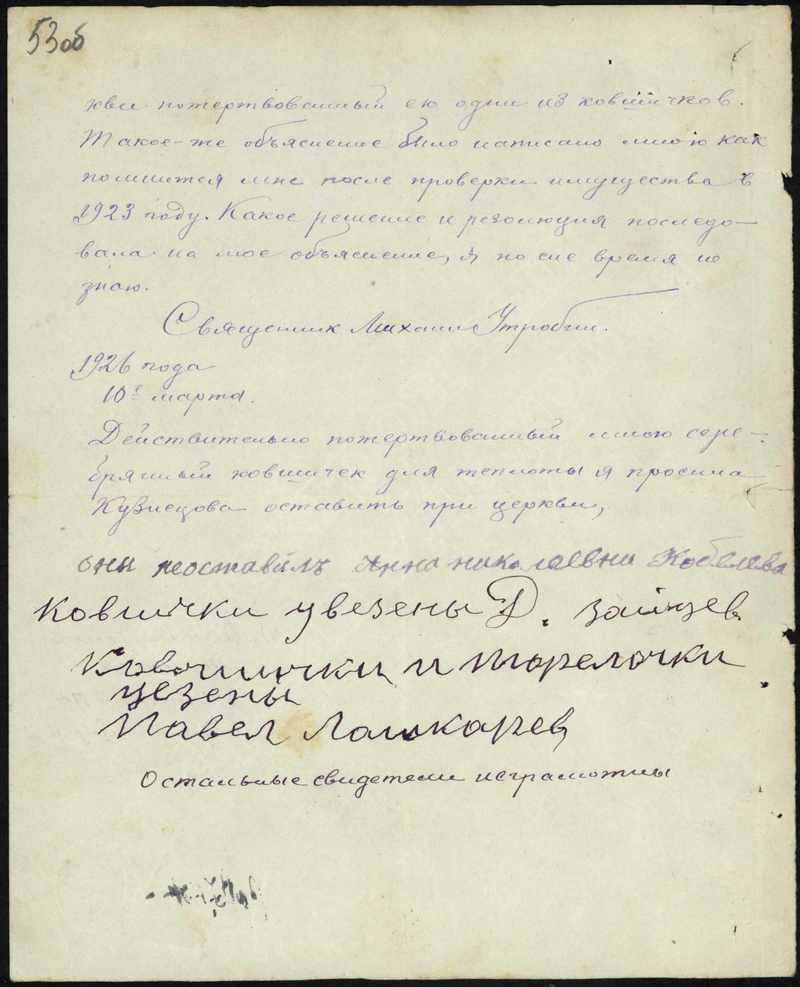 53 об
кви пожертвованный ею один из ковшичков.
Такое-же объяснение было написано мною как
помнится мне после проверки имущества в
1923 году. Какое решение и резолюция последо-
вала на мое объяснение, я по сие время не
знаю.
Священник Михаил Утробин.
1926 года
10го марта.
Действительно пожертвованный мною сере-
бряный ковшичек для теплоты я просила
Кузнецова оставить при церкви,
онъ неоставилъ Анна николаевна Кобелева
Ковшички увезены Д. Зайцев
Ковошички и торелочки
увезены
Павел Лошкарев
Остальные свидетели неграмотны